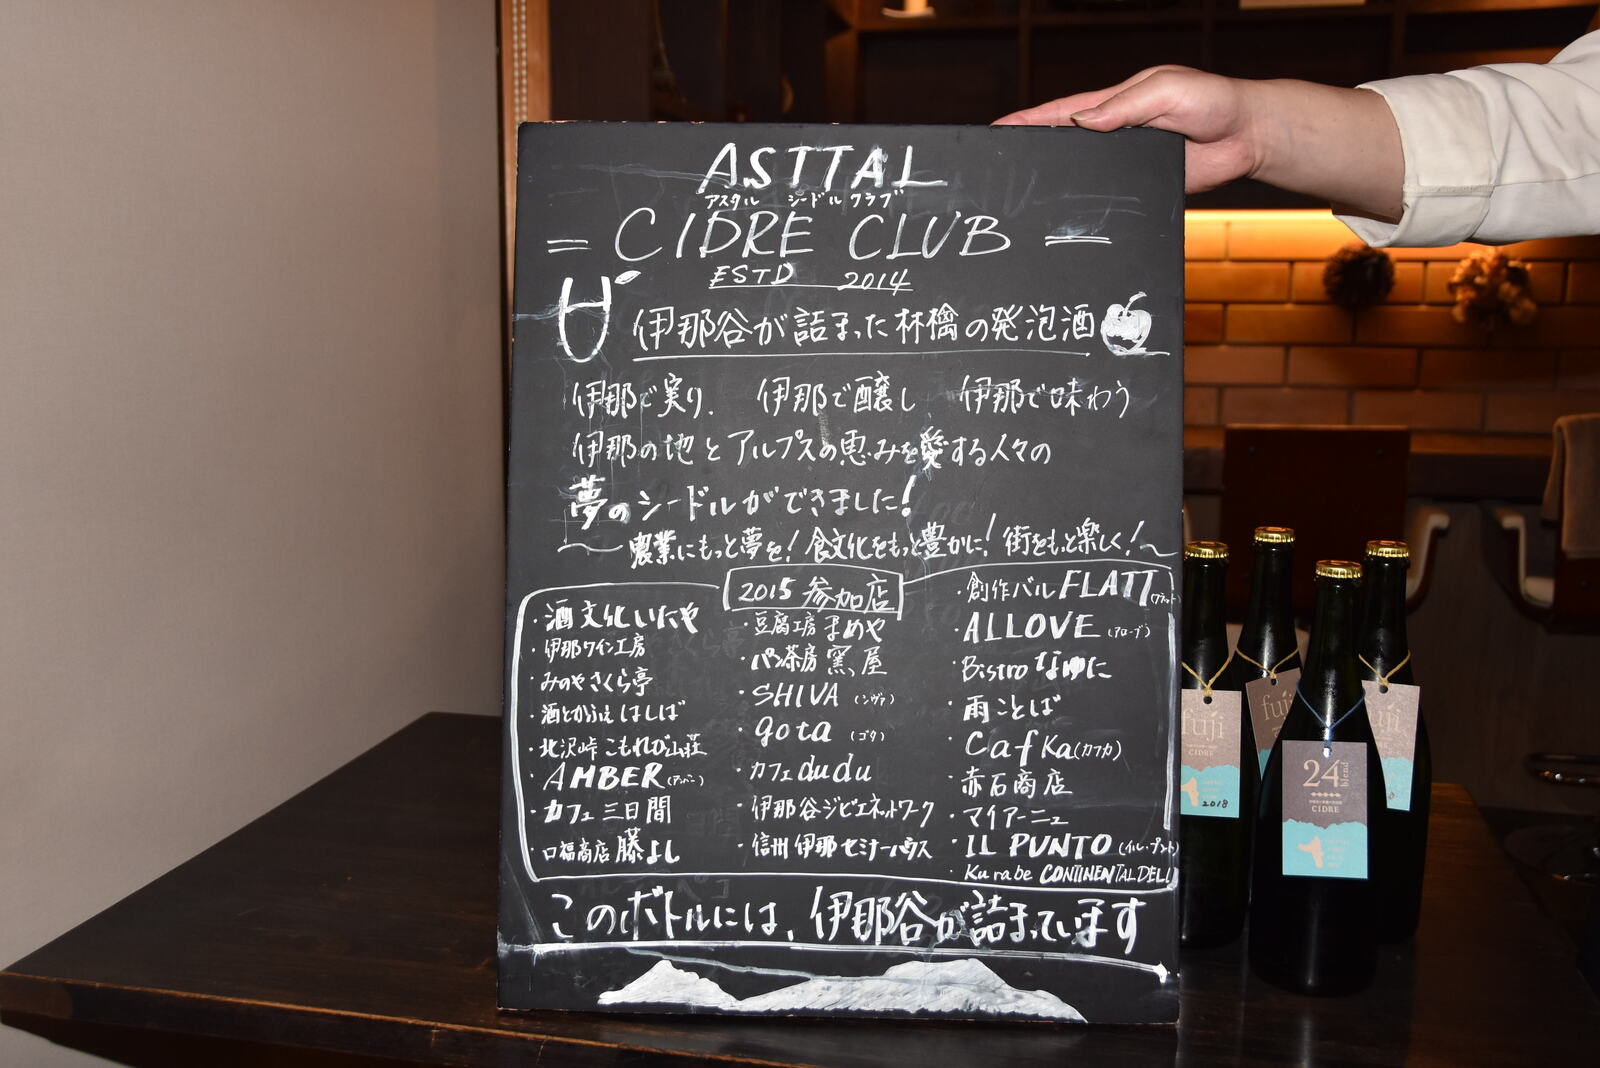 ASTTAL
アスタル シードルクラブ
= CIDRE CLUB =
ESTD 2014
伊那谷が詰まった林檎の発泡酒
伊那で実り、 伊那で醸し、 伊那で味わう
伊那の地とアルプスの恵みを愛する人々の
夢のシードルができました!
〜農業にもっと夢を! 食文化をもっと豊かに! 街をもっと楽しく!〜
2015 参加店
・酒文化いたや
・伊那ワイン工房
・みのやさくら亭
・酒とかふぇ はしば
・北沢峠 こもれび山荘
・AMBER (アンバー)
・カフェ 三日間
・口福商店 藤よし
・豆腐工房 まめや
・パン茶房 窯っ屋
・SHIVA (シヴァ)
・gota (ゴタ)
・カフェ dudu
・伊那谷ジビエネットワーク
・信州伊那セミナーハウス
・創作バル FLATT (フラット)
・ALLOVE (アローブ)
・Bistro なゆに
・雨ことば
・Cafka (カフカ)
・赤石商店
・マイアーニュ
・IL PUNTO (イル・プント)
・Kurabe CONTINENTAL DELI
このボトルには、伊那谷が詰まっています
fuji
CIDRE
2018
fuji
24 blend
CIDRE
fuji